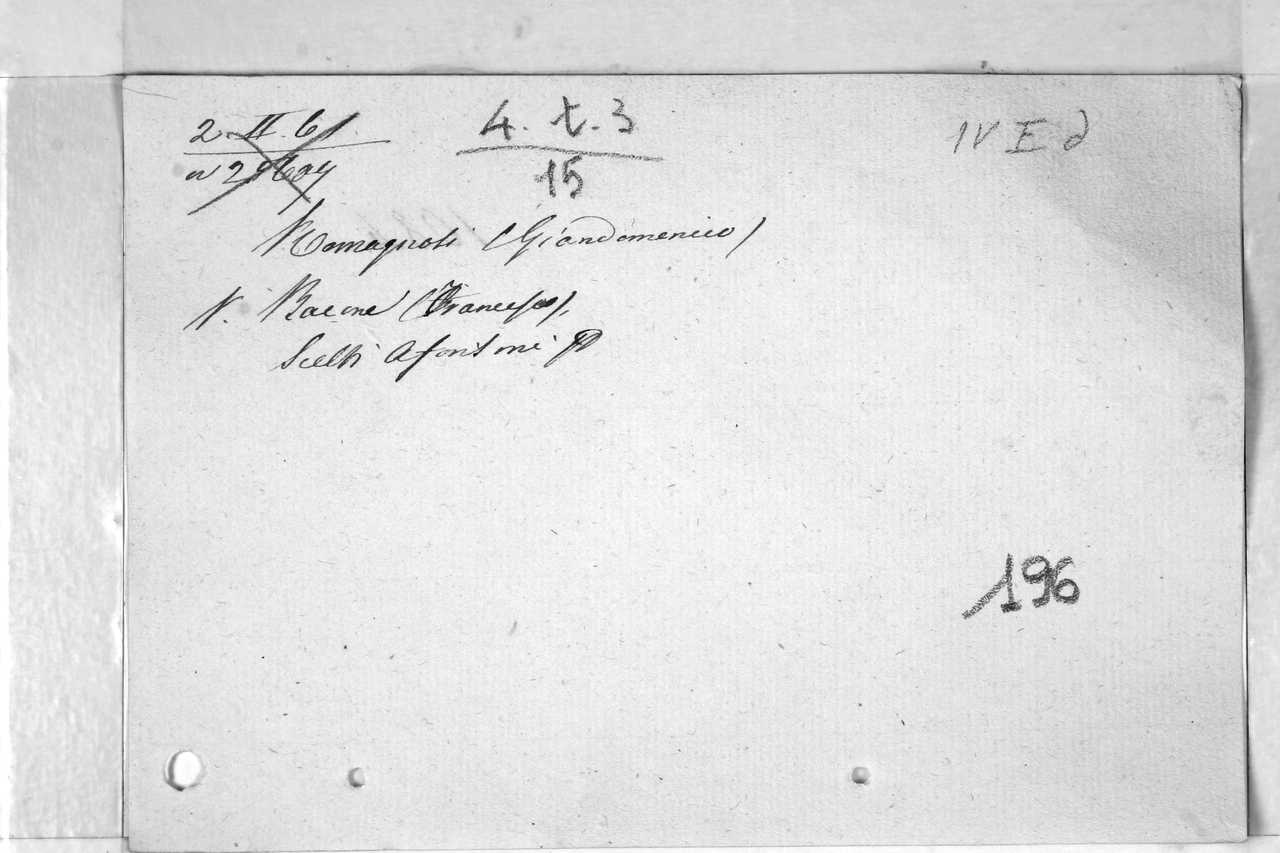 2. II. 61. 4. t. 3 IV E d
15
Romagnosi (Giandomenico)
V. Bacone (Francesco),
Scelti Aforismi
196